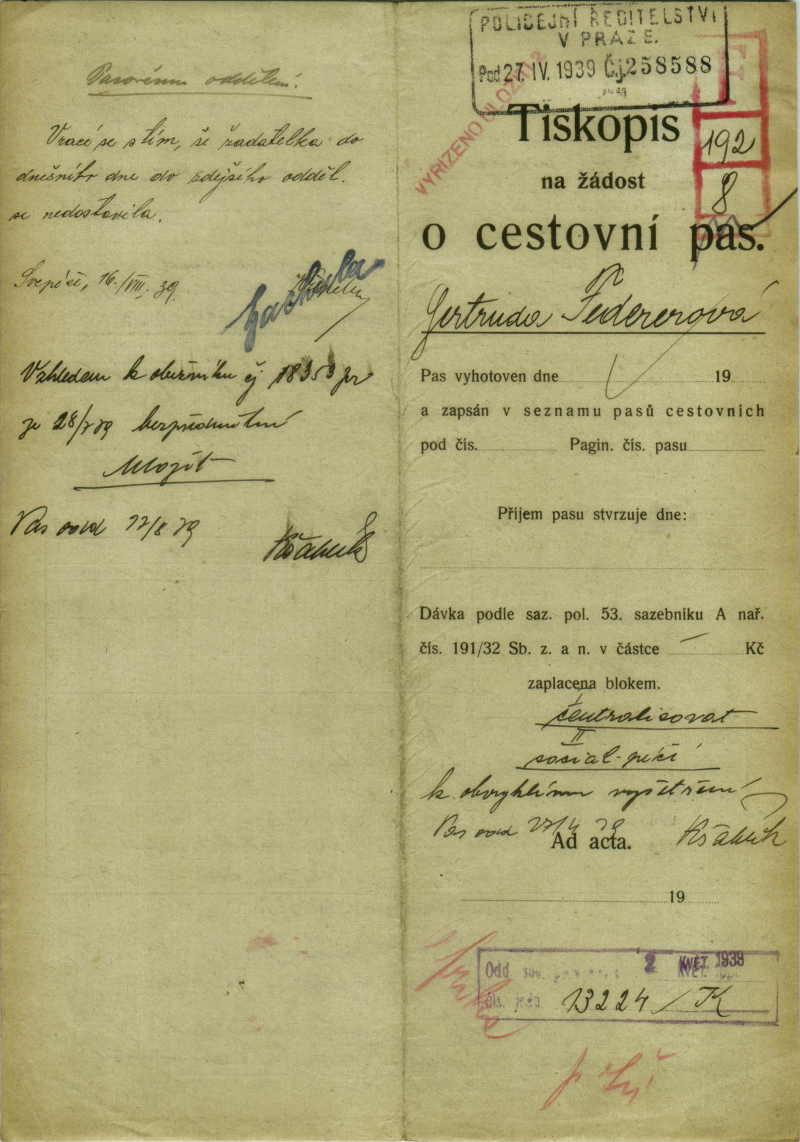 Pasovému oddělení.
Vrací se s tím, že žadatelka do
dnešního dne do zdejšího odděl.
se nedostavila.
16./VIII. 39.
Vzhledem k oběžníku čj 18353 pr
je 28/7 39 bezpředmětné
Uložit
Pas odd 17/8 39
POLICEJNÍ ŘEDITELSTVÍ
V PRAZE.
Pod 27. IV. 1939 Čj. 258588
VYŘIZENO ULOŽIT
192
8
Tiskopis
na žádost
o cestovní pas.
Gertruda Federerová
Pas vyhotoven dne 19
a zapsán v seznamu pasů cestovních
pod čís. Pagin. čís. pasu
Příjem pasu stvrzuje dne:
Dávka podle saz. pol. 53. sazebníku A nař.
čís. 191/32 Sb. z. a n. v částce — Kč
zaplacena blokem.
I
centralisovat
II
sociál. péčí
k obvyklému vyšetření
Pas odd 27/4 39
Ad acta.
19
Odd
2 KVĚT. 1939
13224/K